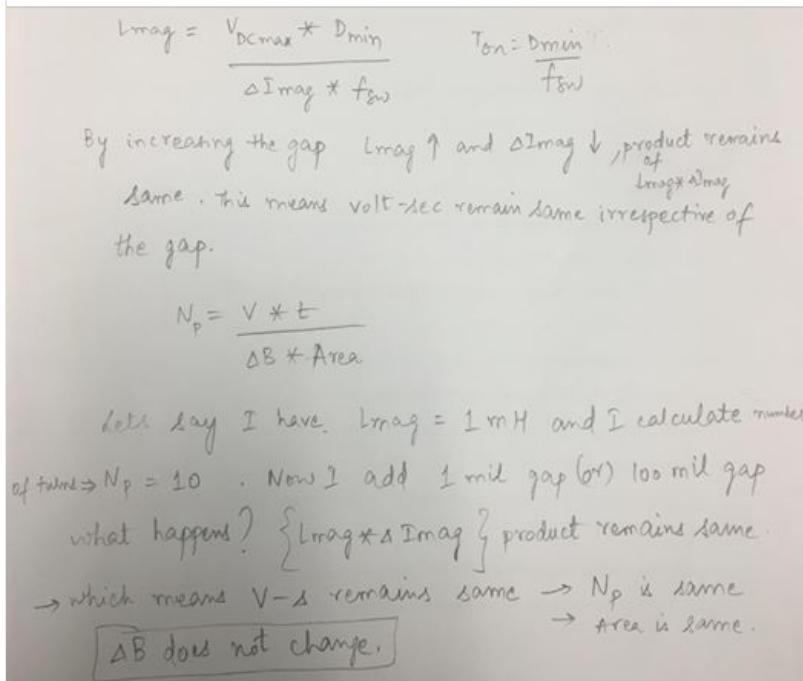 Lmag = VDCmax * Dmin / ΔImag * fsw    Ton = Dmin / fsw
By increasing the gap Lmag ↑ and ΔImag ↓, product remains
of Lmag * ΔImag
same. This means volt-sec remain same irrespective of
the gap.
Np = V * t / ΔB * Area
Lets say I have. Lmag = 1 mH and I calculate number
of turns ⇒ Np = 10 . Now I add 1 mil gap (or) 100 mil gap
what happens? {Lmag * Δ Imag} product remains same.
→ which means V-s remains same → Np is same
→ Area is same.
ΔB does not change.